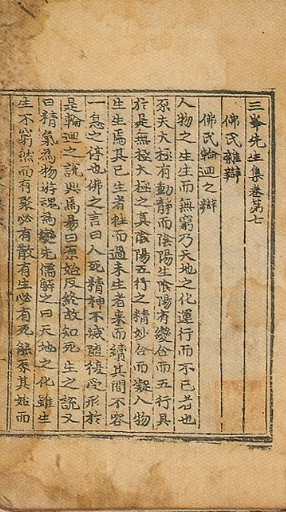 三峯先生集卷第七
佛氏雜辨
佛氏輪迴之辨
人物之生生而無窮乃天地之化運行而不已者也
原夫大極有動靜而陰陽生陰陽有變合而五行具
於是無極大極之眞陰陽五行之精妙合而凝人物
生生焉其已生者徃而過未生者来而續其間不容
一息之停也佛之言曰人死精神不滅隨復受形於
是輪迴之說興焉易曰原始反終故知死生之說又
曰精氣為物游魂為變先儒解之曰天地之化雖生
生不窮然而有聚必有散有生必有死能原其始而